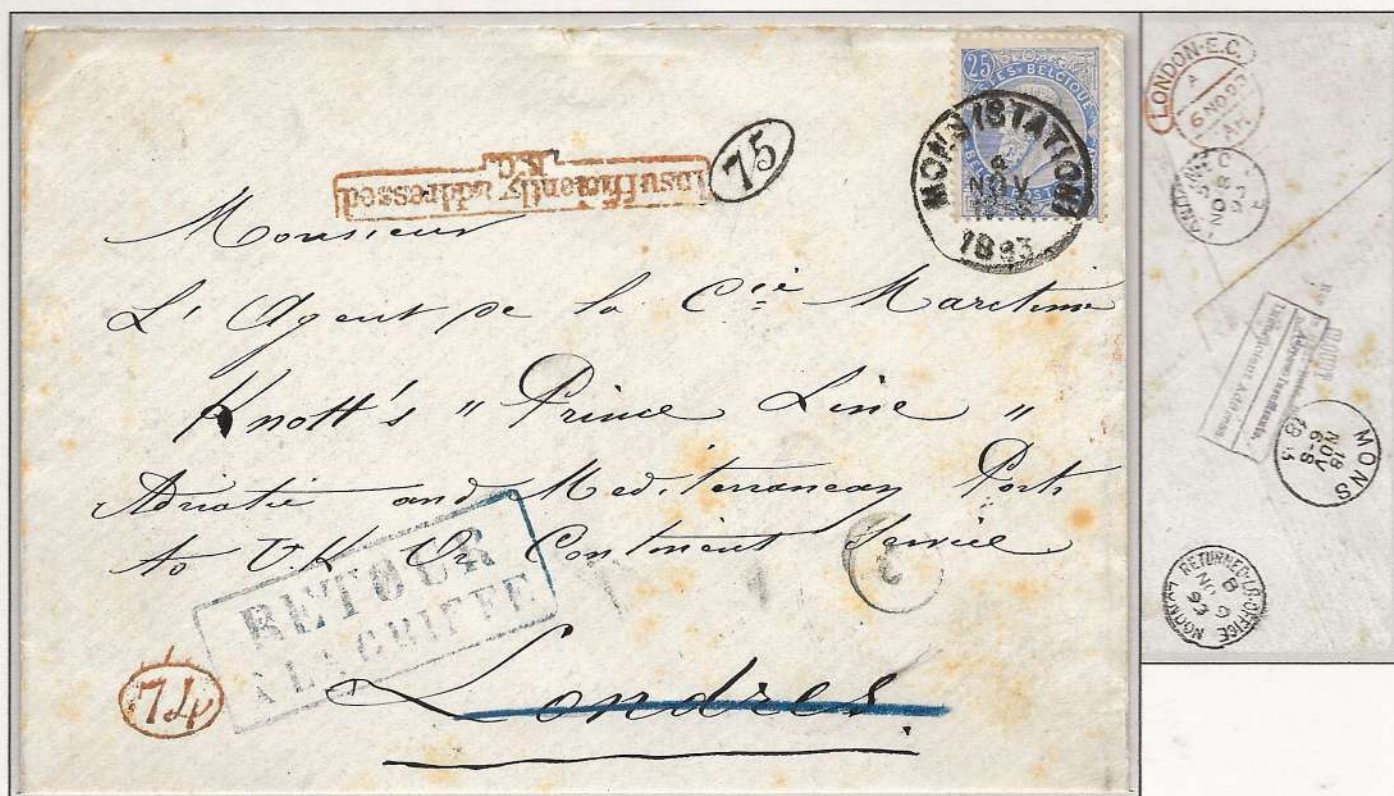 25
POSTES BELGIQUE
MONS (STATION)
NOV
1893
75
Insufficiently addressed
R.C.
Monsieur
L' Agent de la Cie Maritime
Knott's " Prince Line "
Adriatic and Mediterranean Ports
to U.K. Or Continent Service
RETOUR
A LA GRIFFE
2
74
Londres.
LONDON.E.C.
A
6 NO 93
AM
NO
Adresse insuffisante.
Insufficient Address
MONS
18
NOV
6-S
RETURNED LR OFFICE
C
8 NO
93
LONDON